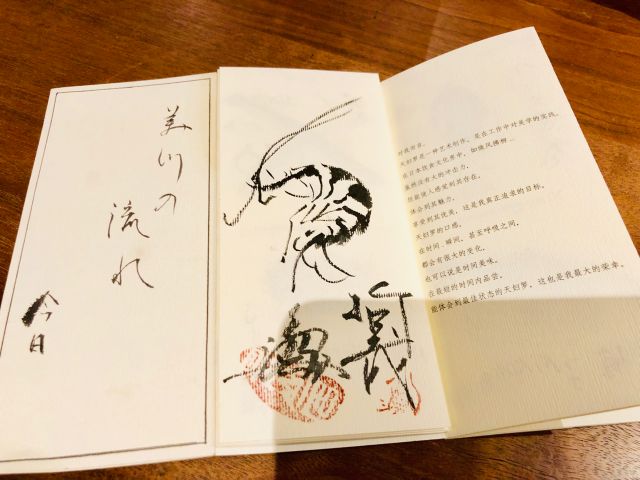 美川の
流れ
今日
对我而言，
天妇罗是一种艺术创作，是在工作中对美学的实践。
在日本饮食文化界中，如微风拂柳一般，
虽然没有大的冲击力，
但能使人感受到其存在，
体会到其魅力，
享受到其优美，这是我真正追求的目标。
天妇罗的口感，
在时间一瞬间，甚至呼吸之间，
都会有很大的变化，
也可以说是时间美味。
在最短的时间内品尝，
能体会到最佳状态的天妇罗，这也是我最大的荣幸。